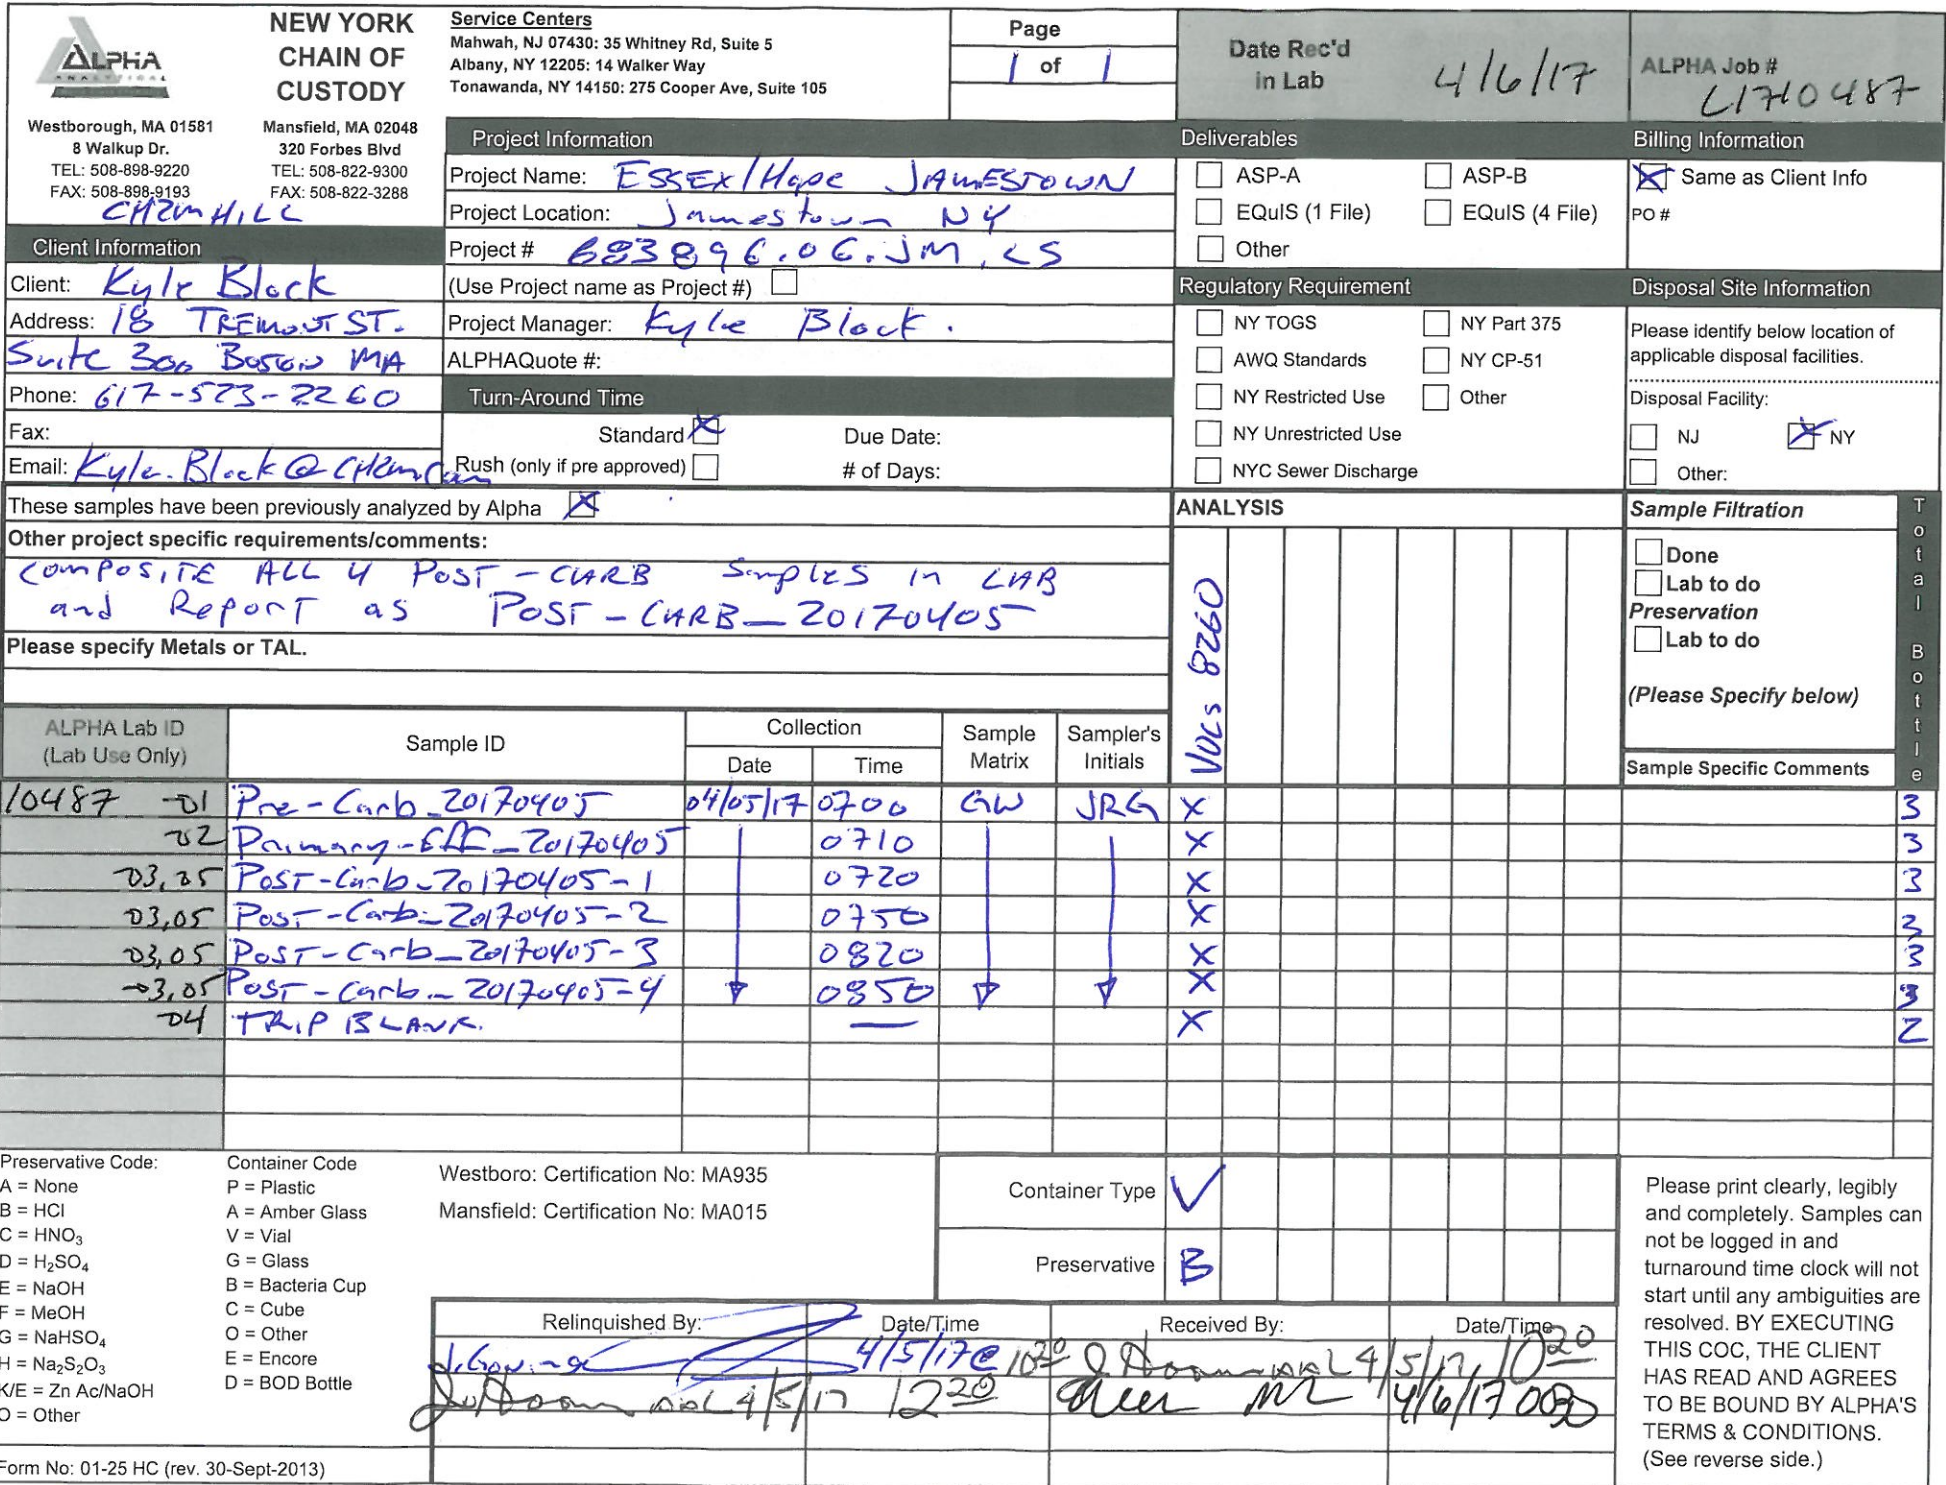 ALPHA
ANALYTICAL
NEW YORK
CHAIN OF
CUSTODY
Westborough, MA 01581
8 Walkup Dr.
TEL: 508-898-9220
FAX: 508-898-9193
Mansfield, MA 02048
320 Forbes Blvd
TEL: 508-822-9300
FAX: 508-822-3288
CH2MHILL
Service Centers
Mahwah, NJ 07430: 35 Whitney Rd, Suite 5
Albany, NY 12205: 14 Walker Way
Tonawanda, NY 14150: 275 Cooper Ave, Suite 105
Page
1 of 1
Date Rec'd
in Lab
4/6/17
ALPHA Job #
L1710487
Client Information
Client: Kyle Block
Address: 18 TREMONT ST.
Suite 300 BOSTON MA
Phone: 617-523-2260
Fax:
Email: Kyle.Block@CH2m.com
Project Information
Project Name: ESSEX/Hope JAMESTOWN
Project Location: Jamestown NY
Project # 683896.06.JM.LS
(Use Project name as Project #)
Project Manager: Kyle Block.
ALPHAQuote #:
Turn-Around Time
Standard X
Due Date:
Rush (only if pre approved)
# of Days:
Deliverables
ASP-A
ASP-B
EQuIS (1 File)
EQuIS (4 File)
Other
Regulatory Requirement
NY TOGS
NY Part 375
AWQ Standards
NY CP-51
NY Restricted Use
Other
NY Unrestricted Use
NYC Sewer Discharge
Billing Information
X Same as Client Info
PO #
Disposal Site Information
Please identify below location of
applicable disposal facilities.
Disposal Facility:
NJ
X NY
Other:
These samples have been previously analyzed by Alpha X
Other project specific requirements/comments:
COMPOSITE ALL 4 POST-CARB Samples in LAB
and Report as POST-CARB_20170405
Please specify Metals or TAL.
ANALYSIS
VOCs 8260
Sample Filtration
Done
Lab to do
Preservation
Lab to do
(Please Specify below)
Sample Specific Comments
Total Bottle
ALPHA Lab ID
(Lab Use Only)
Sample ID
Collection
Date
Time
Sample
Matrix
Sampler's
Initials
10487 -01 Pre-Carb_20170405 04/05/17 0700 GW JRG X 3
02 Primary-Eff_20170405 0710 X 3
03,05 Post-Carb_20170405-1 0720 X 3
03,05 Post-Carb_20170405-2 0750 X 3
03,05 Post-Carb_20170405-3 0820 X 3
03,05 Post-Carb_20170405-4 0850 X 3
04 TRIP BLANK. — X 2
Preservative Code:
A = None
B = HCl
C = HNO₃
D = H₂SO₄
E = NaOH
F = MeOH
G = NaHSO₄
H = Na₂S₂O₃
K/E = Zn Ac/NaOH
O = Other
Container Code
P = Plastic
A = Amber Glass
V = Vial
G = Glass
B = Bacteria Cup
C = Cube
O = Other
E = Encore
D = BOD Bottle
Westboro: Certification No: MA935
Mansfield: Certification No: MA015
Container Type V
Preservative B
Relinquished By:
Date/Time
Received By:
Date/Time
4/5/17@1020
4/5/17, 1020
4/5/17 1220
4/6/17
Please print clearly, legibly
and completely. Samples can
not be logged in and
turnaround time clock will not
start until any ambiguities are
resolved. BY EXECUTING
THIS COC, THE CLIENT
HAS READ AND AGREES
TO BE BOUND BY ALPHA'S
TERMS & CONDITIONS.
(See reverse side.)
Form No: 01-25 HC (rev. 30-Sept-2013)